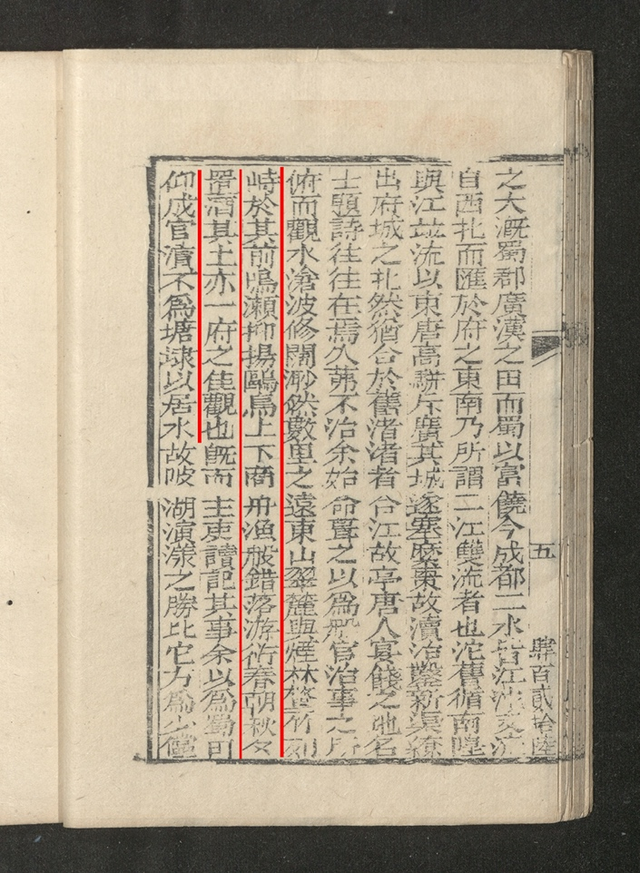 五
肆百貳拾陸
之大溉蜀郡廣漢之田而蜀以富饒今成都二水皆江沱支流
自西北而匯於府之東南乃所謂二江雙流者也沱舊循南隍
與江竝流以東唐高駢斥廣其城遂塞糜棗故瀆治鑿新渠繚
出府城之北然猶合於舊渚渚者合江故亭唐人宴餞之地名
士題詩往往在焉久茀不治余始命葺之以爲船官治事之所
俯而觀水滄波修闊渺然數里之遠東山翠麓與煙林篁竹列
峙於其前鳴瀬抑揚鷗鳥上下商舟漁船錯落游衍春朝秋夕
置酒其上亦一府之佳觀也旣而主吏請記其事余以爲蜀田
仰成官瀆不爲塘埭以居水故陂湖演漾之勝比它方爲少儻